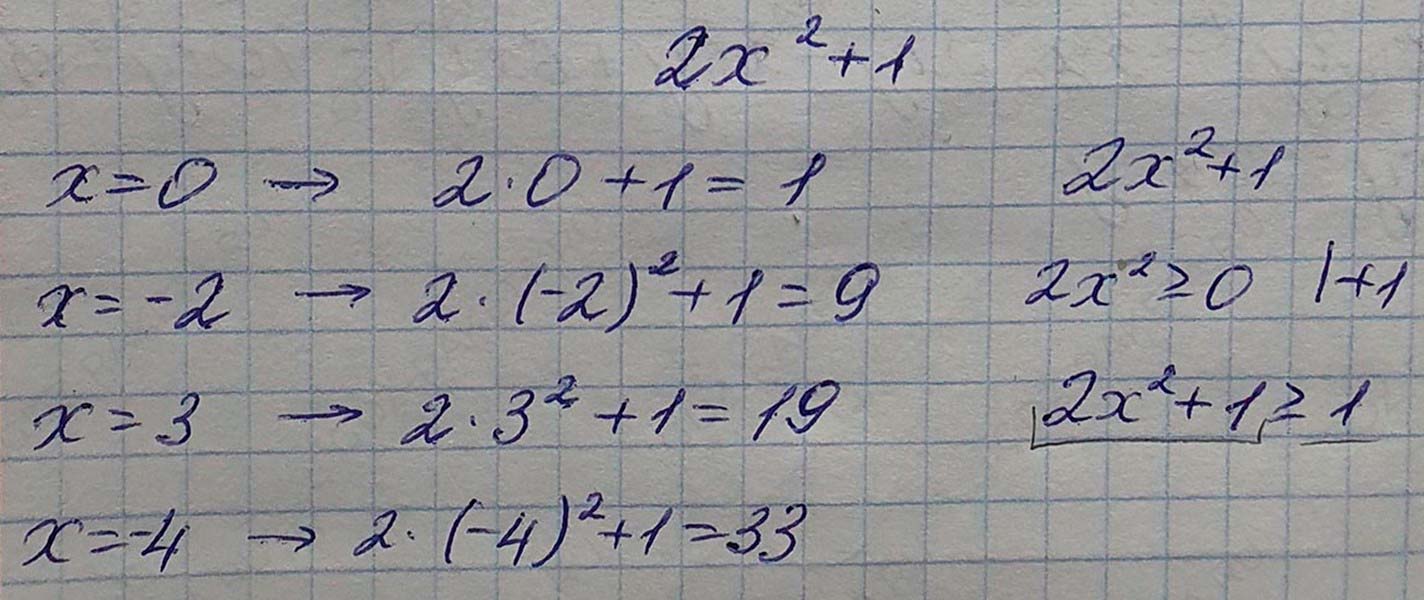 2x² + 1
x = 0 → 2 · 0 + 1 = 1
x = -2 → 2 · (-2)² + 1 = 9
x = 3 → 2 · 3² + 1 = 19
x = -4 → 2 · (-4)² + 1 = 33
2x² + 1
2x² ≥ 0 | +1
2x² + 1 ≥ 1